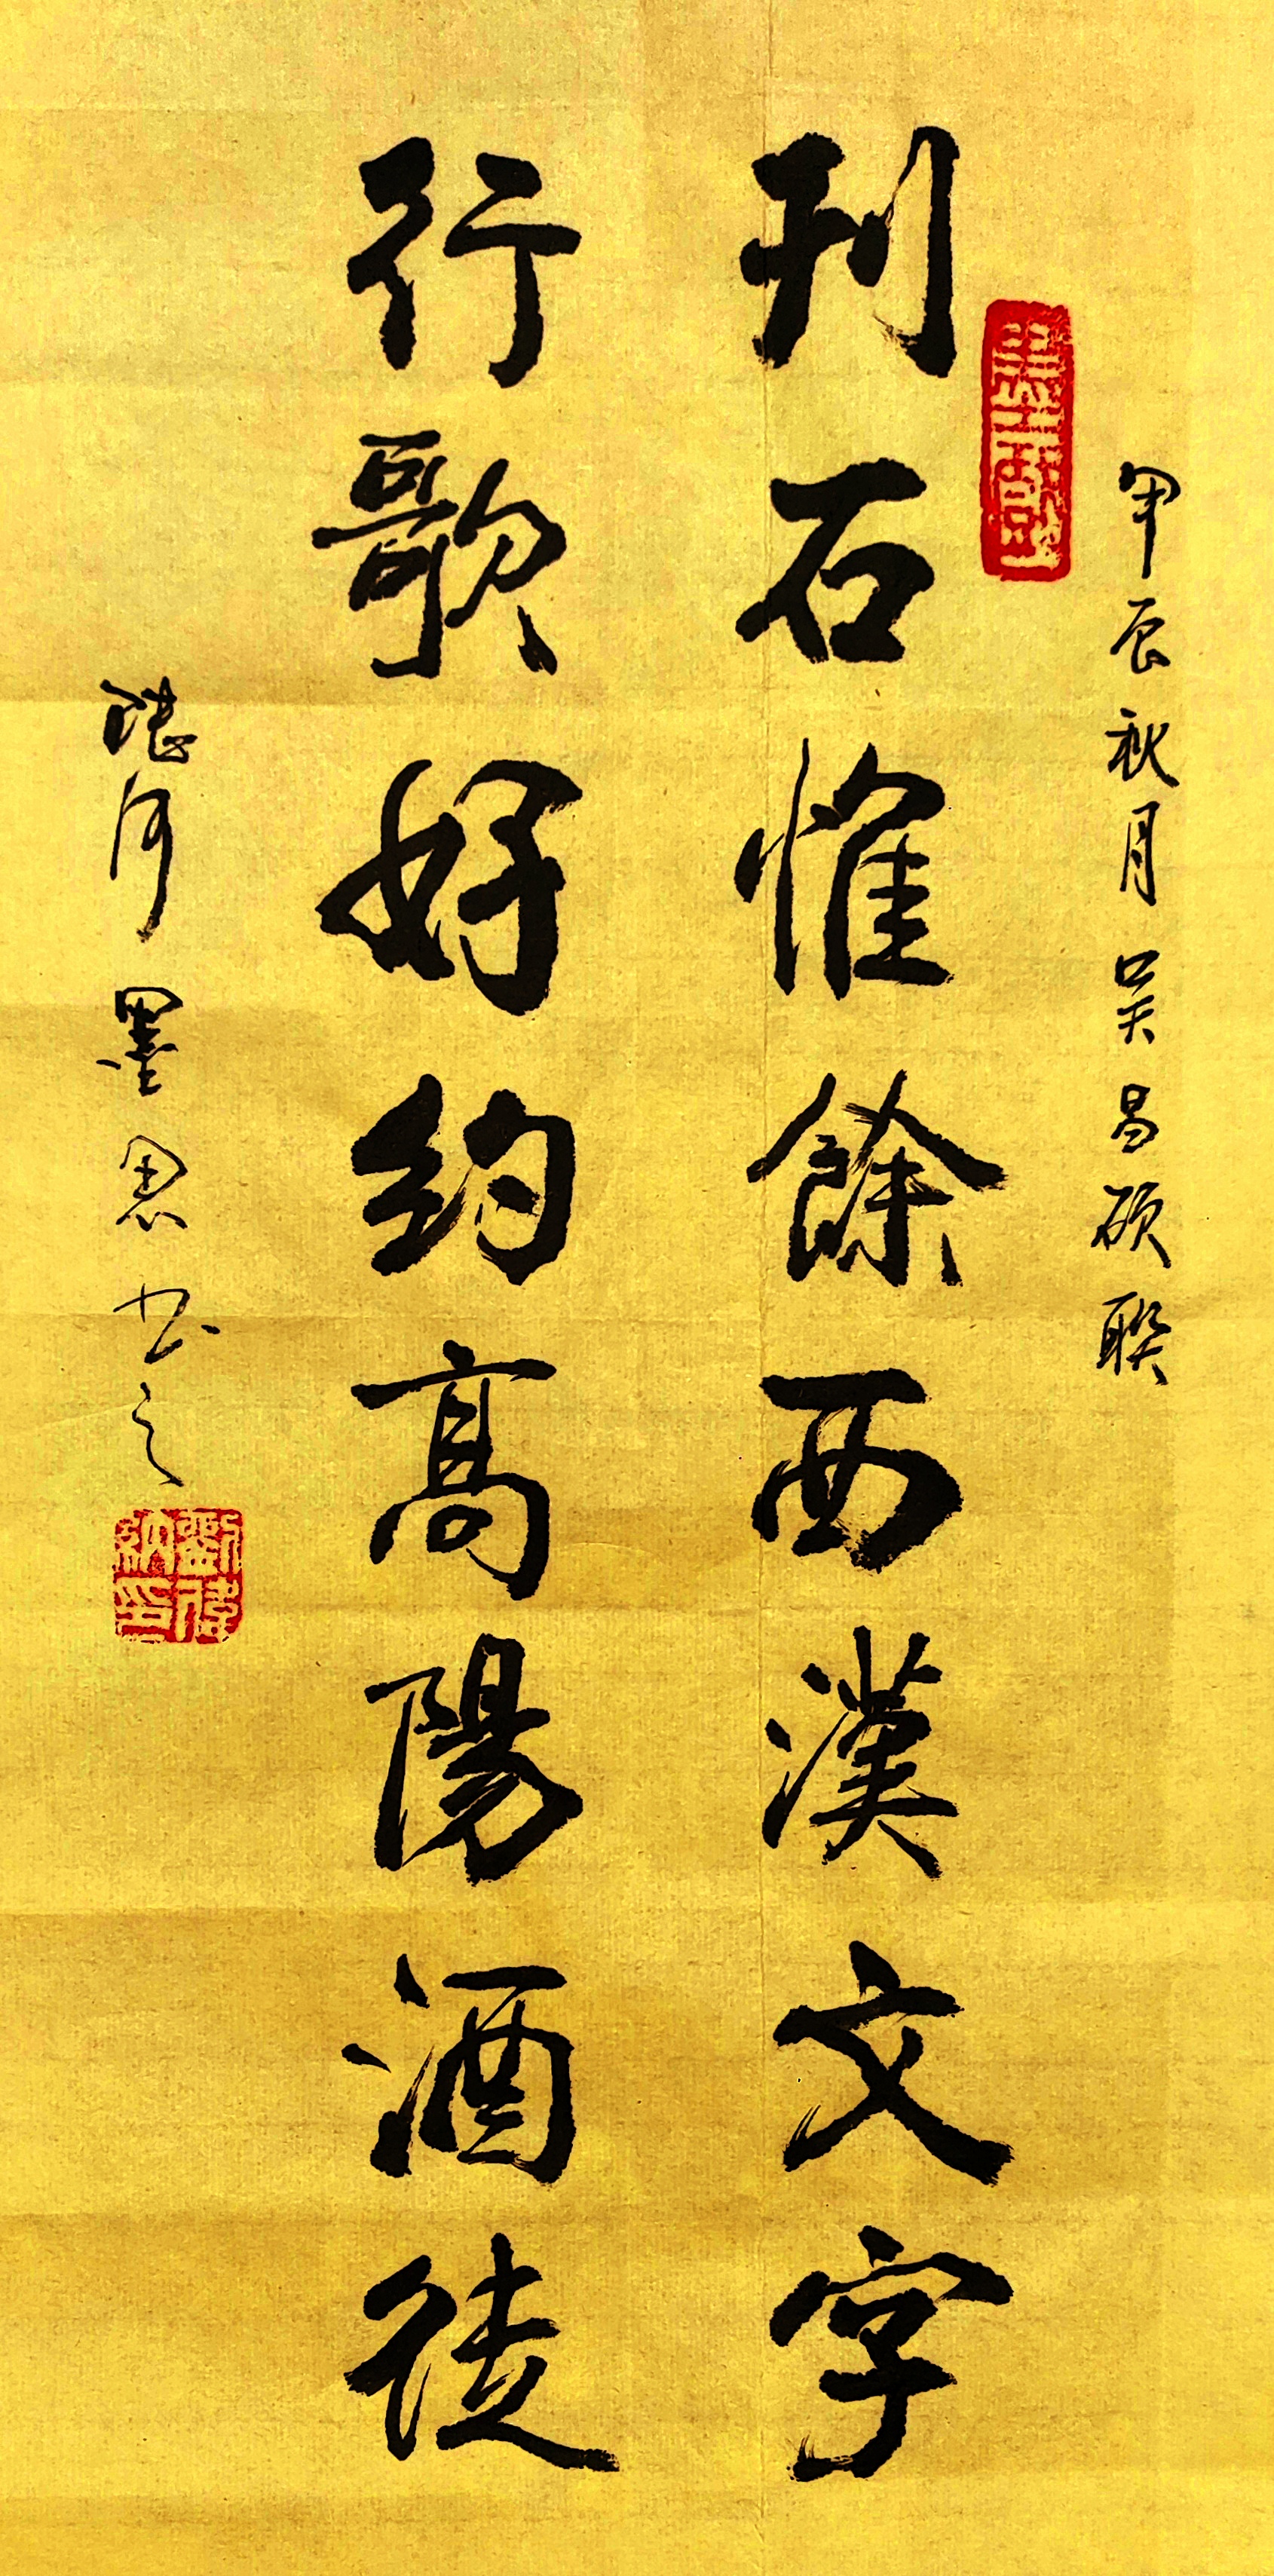 甲辰秋月吴昌硕联
刊石惟餘西漢文字
行歌好约高陽酒徒
湛河墨思书之